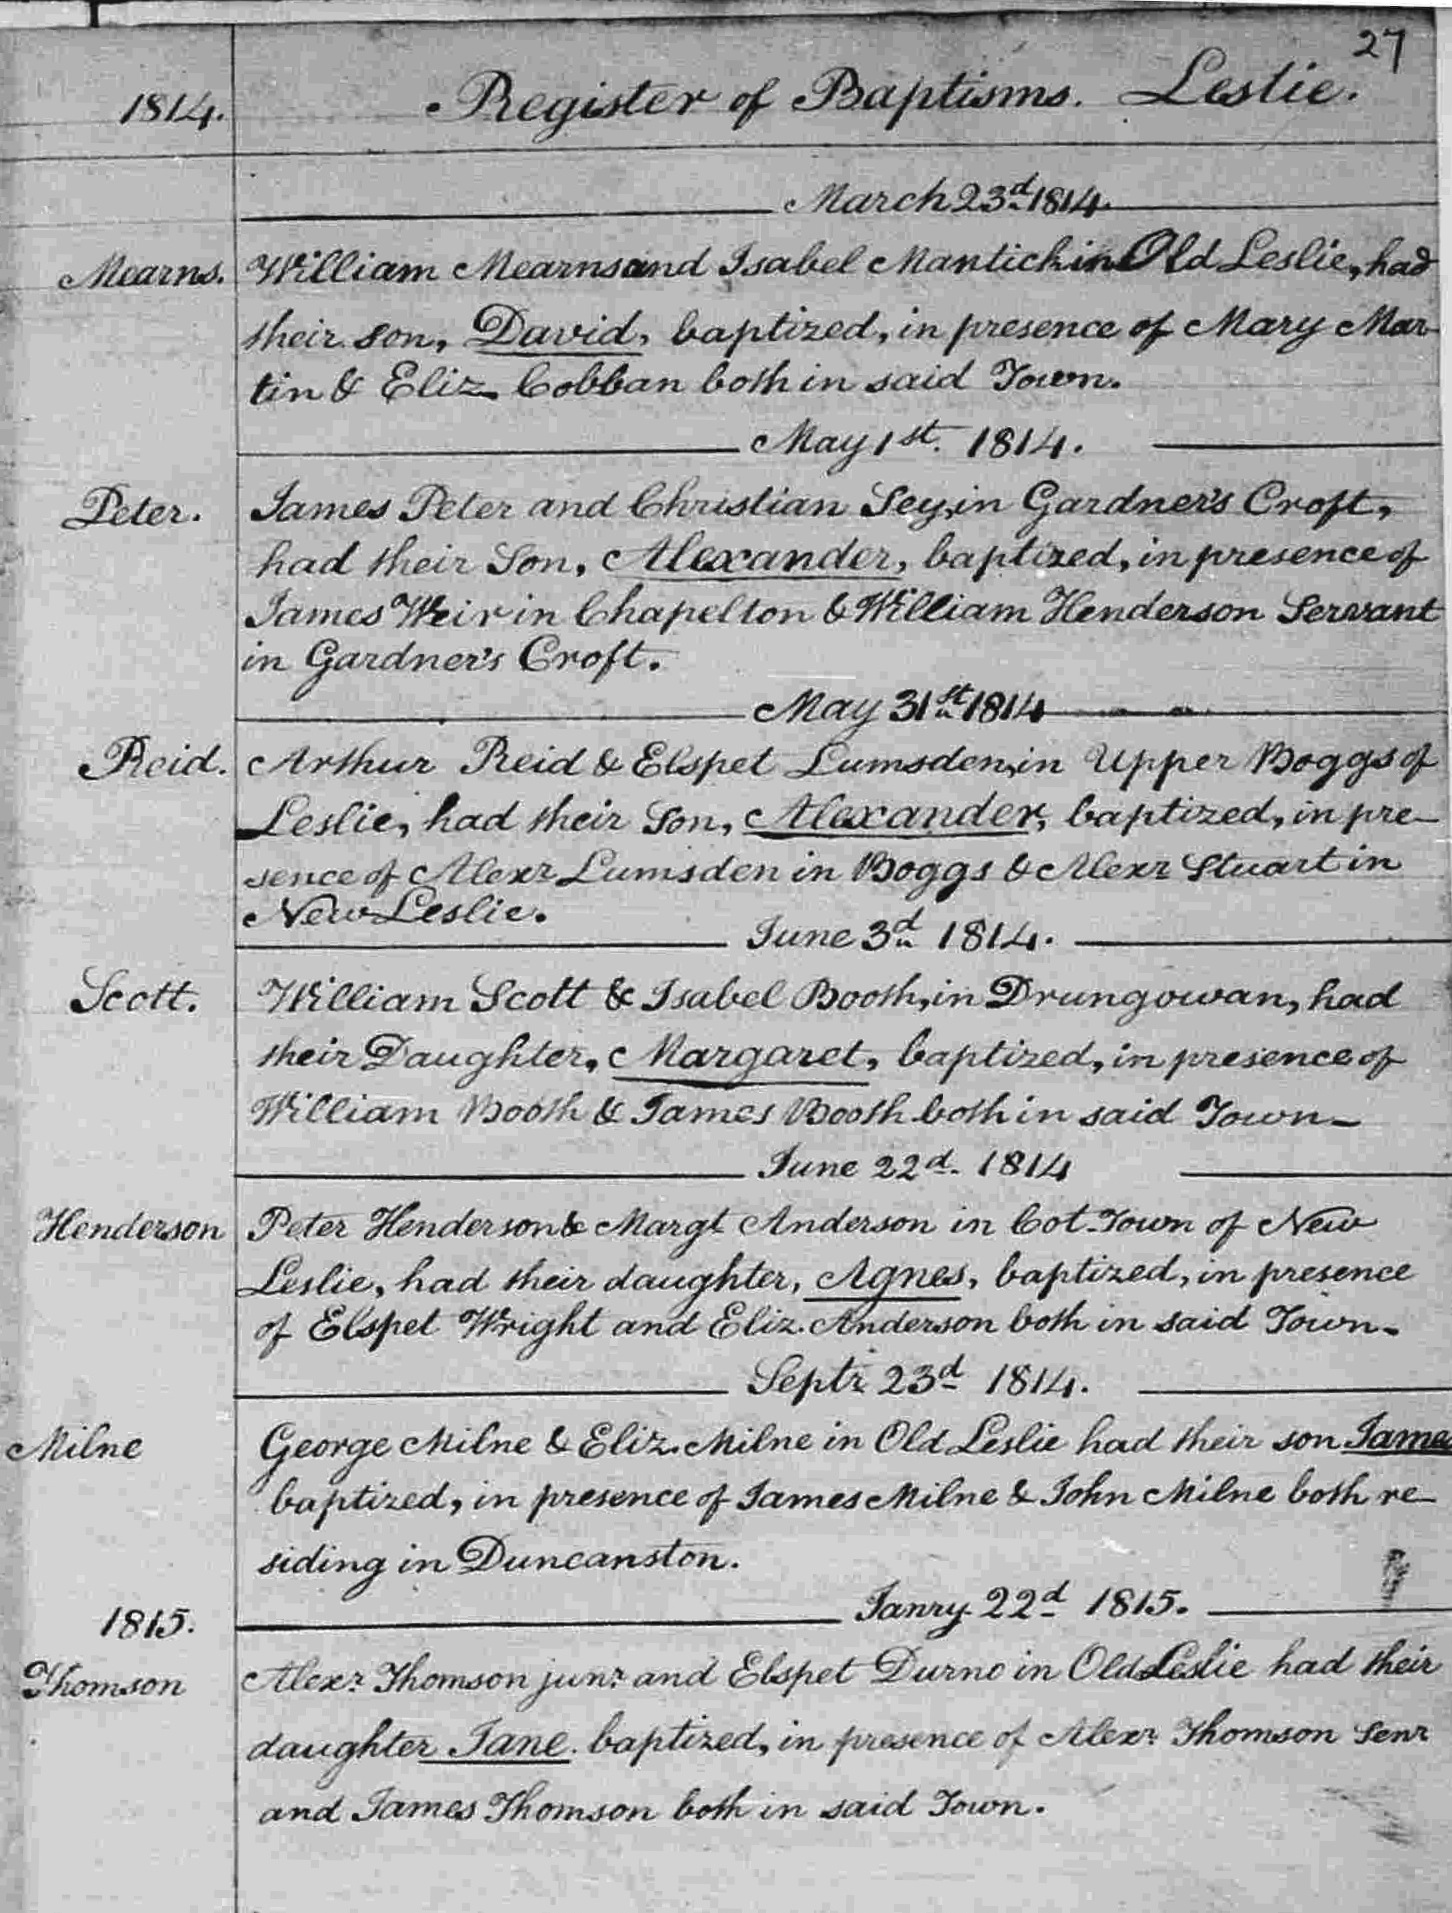 27
1814. Register of Baptisms. Leslie.
March 23d 1814.
Mearns. William Mearns and Isabel Mantich in Old Leslie, had
their son, David, baptized, in presence of Mary Mar-
tin & Eliz. Cobban both in said Town.
May 1st. 1814.
Peter. James Peter and Christian Sey, in Gardner's Croft,
had their Son, Alexander, baptized, in presence of
James Weir in Chapelton & William Henderson Servant
in Gardner's Croft.
May 31st 1814
Reid. Arthur Reid & Elspet Lumsden, in Upper Boggs of
Leslie, had their Son, Alexander, baptized, in pre-
sence of Alexr Lumsden in Boggs & Alexr Stuart in
New Leslie.
June 3d 1814.
Scott. William Scott & Isabel Booth, in Drungowan, had
their Daughter, Margaret, baptized, in presence of
William Booth & James Booth both in said Town-
June 22d. 1814
Henderson Peter Henderson & Margt Anderson in Cot-Town of New
Leslie, had their daughter, Agnes, baptized, in presence
of Elspet Wright and Eliz. Anderson both in said Town-
Septr 23d 1814.
Milne George Milne & Eliz. Milne in Old Leslie had their son James
baptized, in presence of James Milne & John Milne both re-
siding in Duncanston.
1815. Janry 22d 1815.
Thomson Alexr. Thomson junr. and Elspet Durno in Old Leslie had their
daughter Jane. baptized, in presence of Alexr. Thomson Senr
and James Thomson both in said Town.